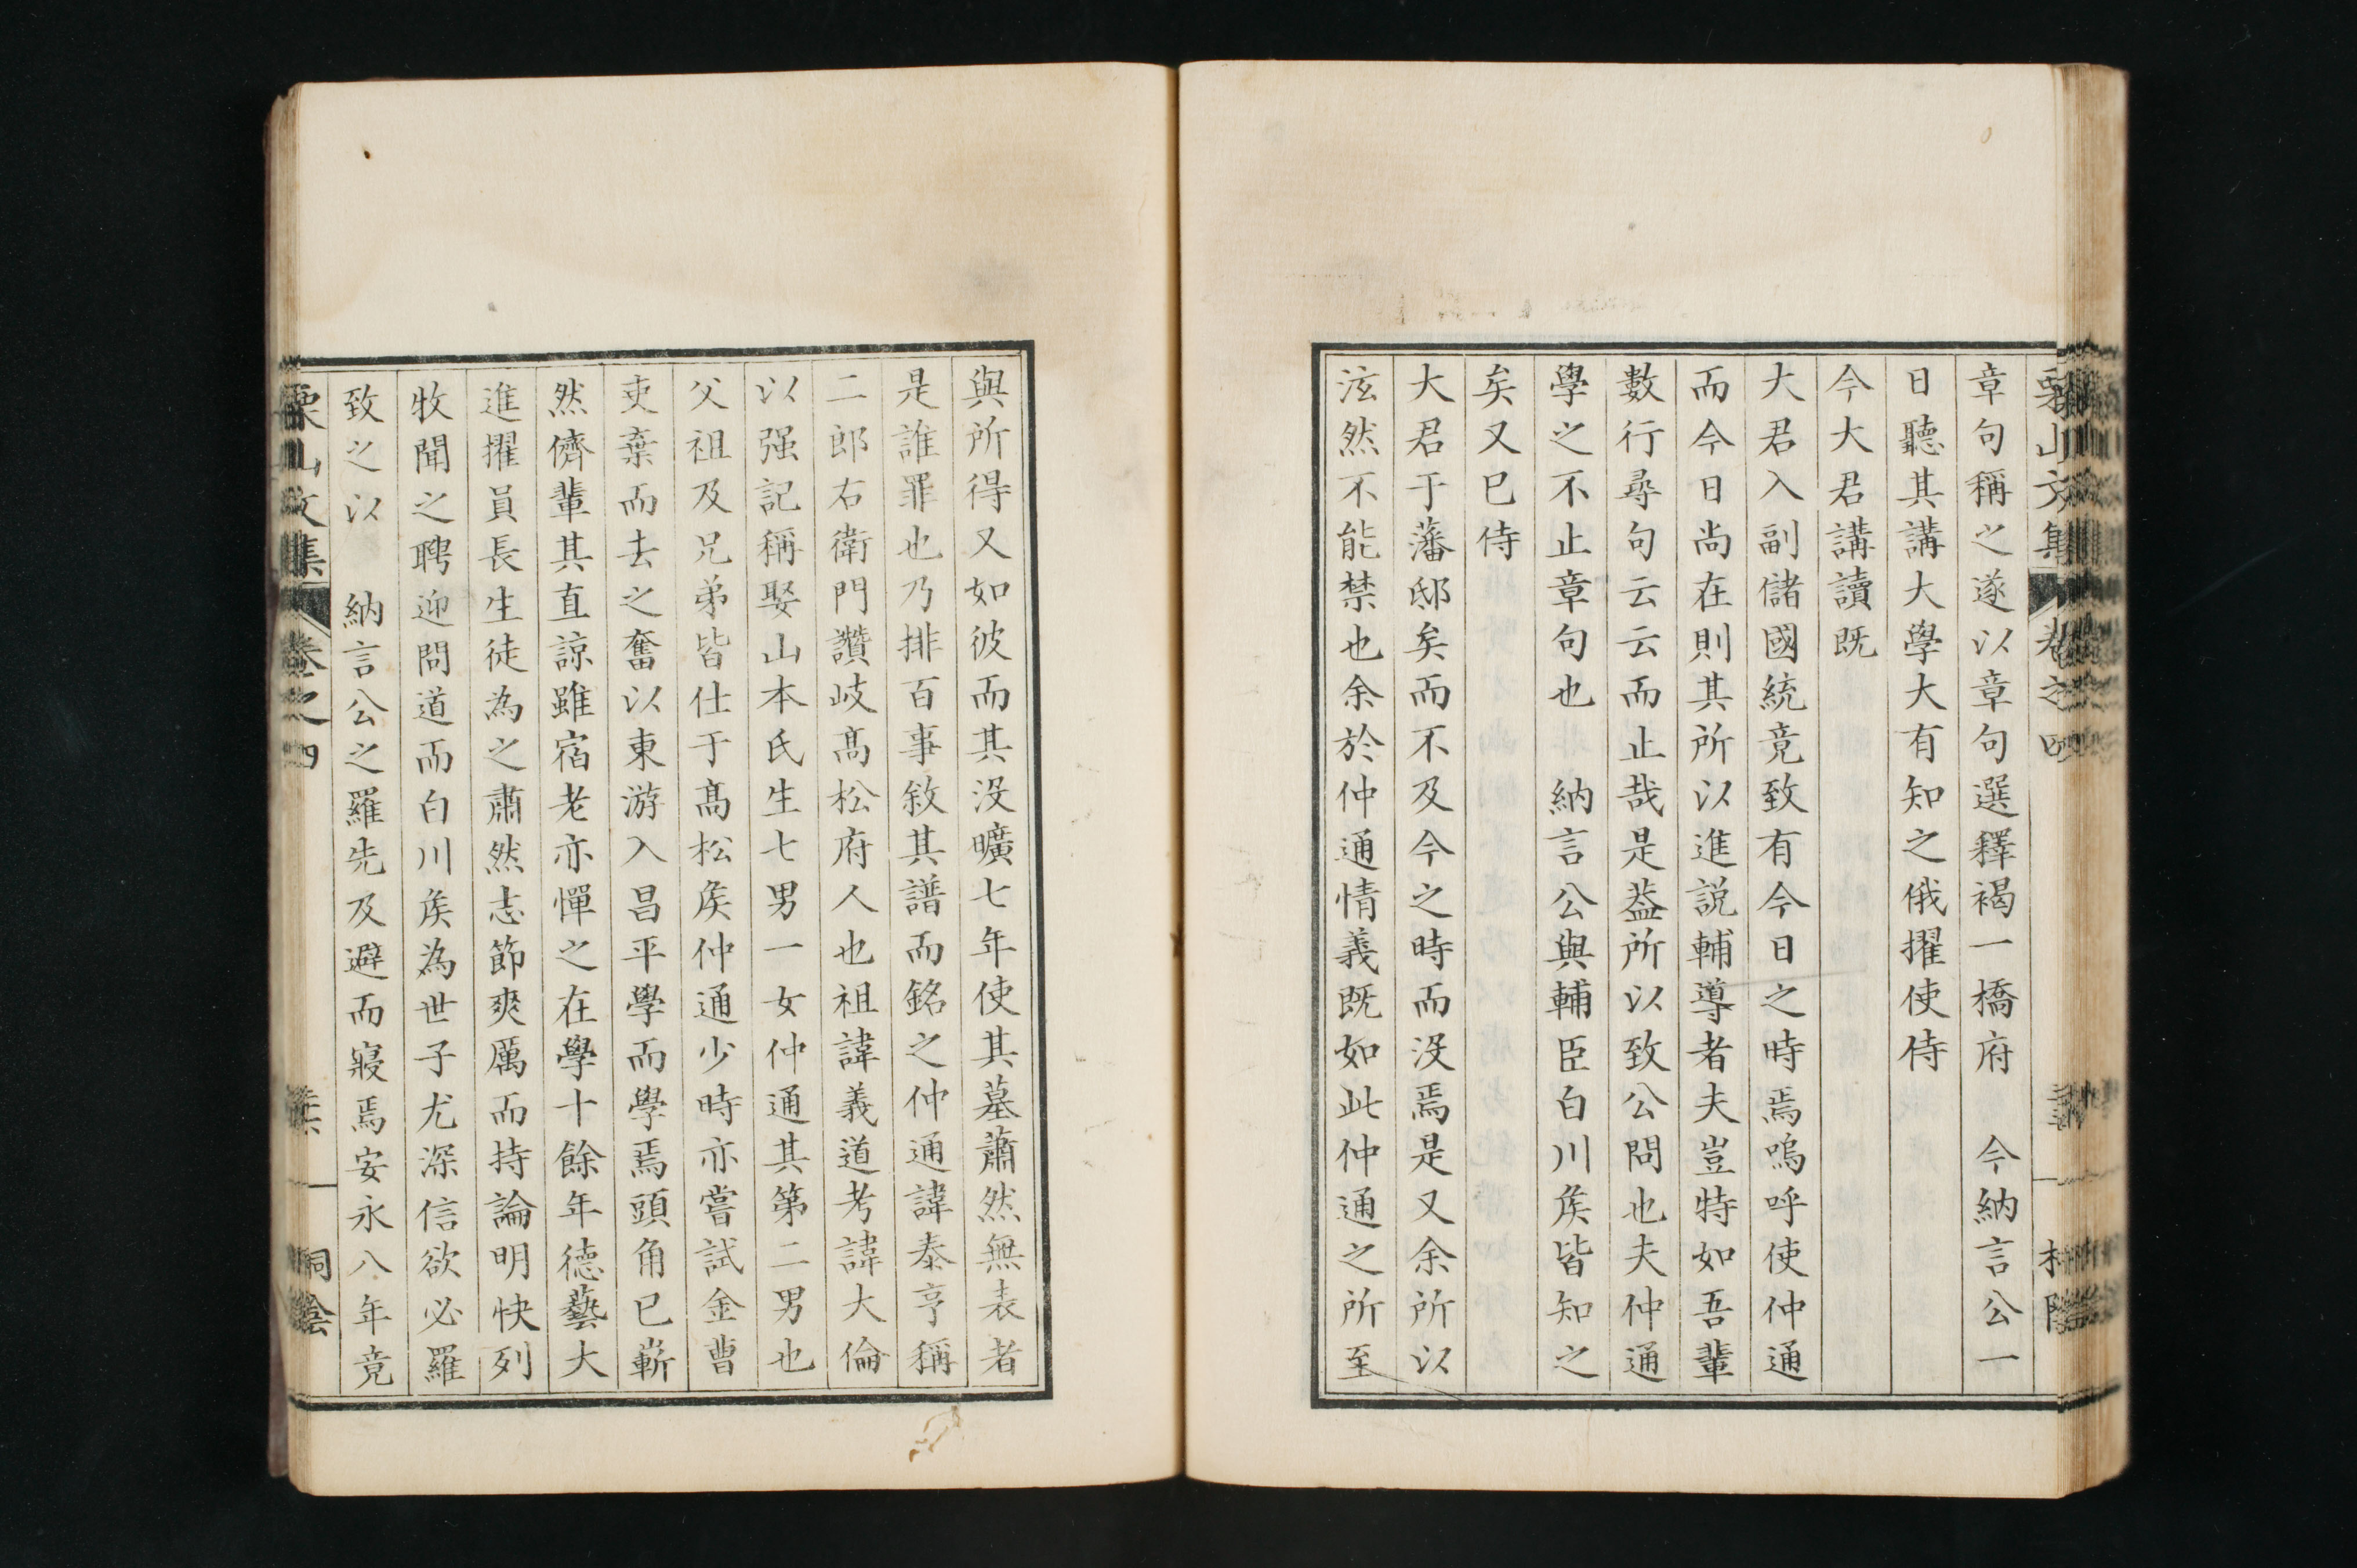 章句稱之遂以章句選釋褐一橋府　今納言公一
日聽其講大學大有知之俄擢使侍
今大君講讀既
大君入副儲國統竟致有今日之時焉嗚呼使仲通
而今日尚在則其所以進説輔導者夫豈特如吾輩
數行尋句云云而止哉是葢所以致公問也夫仲通
學之不止章句也　納言公與輔臣白川矦皆知之
矣又巳侍
大君于藩邸矣而不及今之時而没焉是又余所以
泫然不能禁也余於仲通情義既如此仲通之所至
與所得又如彼而其没曠七年使其墓蕭然無表者
是誰罪也乃排百事敘其譜而銘之仲通諱泰亨稱
二郎右衛門讚岐髙松府人也祖諱義道考諱大倫
以强記稱娶山本氏生七男一女仲通其第二男也
父祖及兄弟皆仕于髙松矦仲通少時亦嘗試金曹
吏棄而去之奮以東游入昌平學而學焉頭角已嶄
然儕輩其直諒雖宿老亦憚之在學十餘年德藝大
進擢員長生徒為之肅然志節爽厲而持論明快列
牧聞之聘迎問道而白川矦為世子尤深信欲必羅
致之以　納言公之羅先及避而寢焉安永八年竟
栗山文集　卷之四